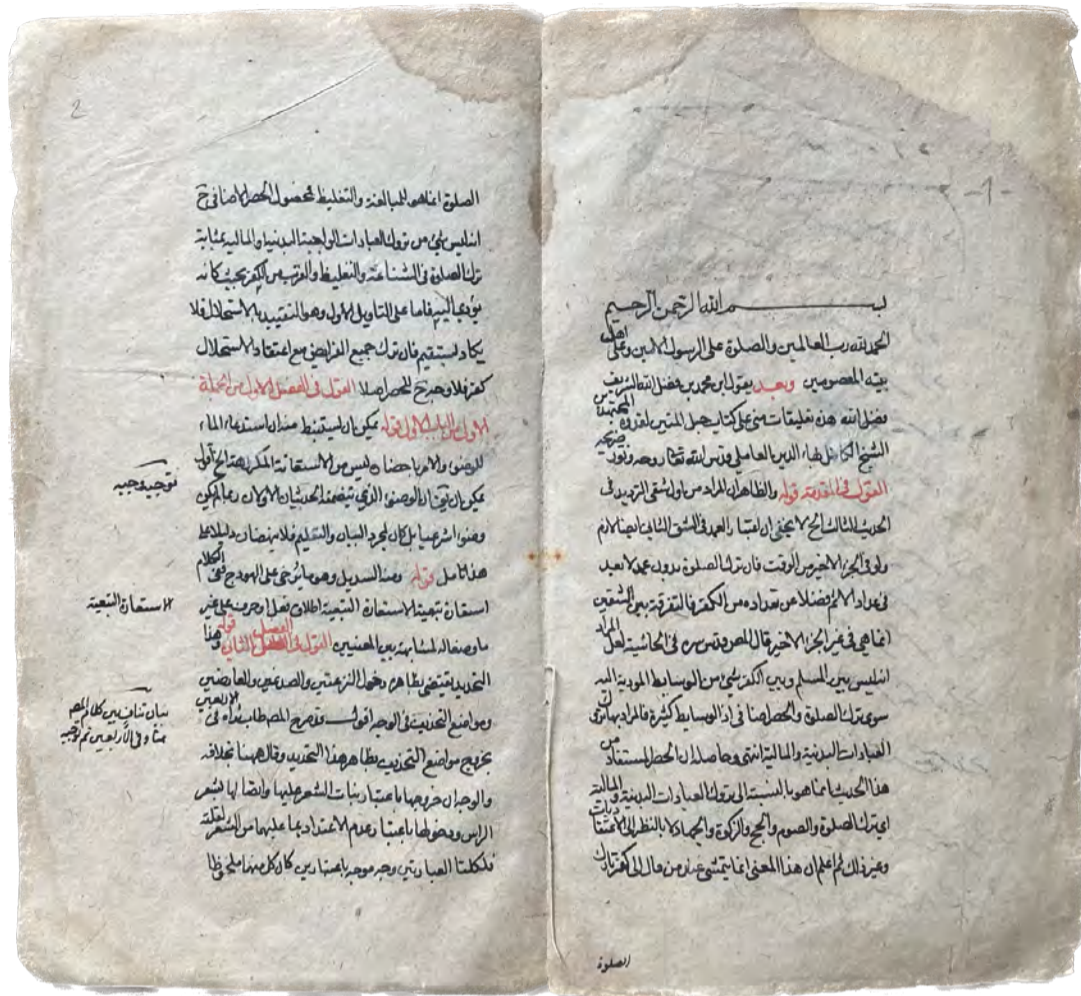 بسم الله الرحمن الرحيم
الحمد لله رب العالمين والصلوة على الرسول الامين وعلى اهل
بيته المعصومين وبعد يقول ابن محمد بن فضل الله الشريف
فضل الله هذه تعليقات مني على كتاب حبل المتين
الشيخ الكامل بهاء الدين العاملي قدس الله تعالى روحه ونور ضريحه
القول في المقدمة قوله والظاهر ان المراد من اول شقي الترديد في
الحديث الثالث الخ لا يخفى ان اعتبار العمد في الشق الثاني ايضا لازم
ولو في الجزء الاخير من الوقت فان ترك الصلوة بدون عمد لا يعد
في عداد الاثم فضلا عن تعداده من الكفر فالتفرقة بين الشقين
انما هي في غير الجزء الاخير قال المص قدس سره في الحاشية لعل المراد
انه ليس بين المسلم وبين الكفر شيء من الوسايط المودية اليه
سوى ترك الصلوة والحصر اضافي اذ الوسايط كثيرة فالمراد بها ترك
العبادات البدنية والمالية انتهى وحاصله ان الحصر المستفاد من
هذا الحديث انما هو بالنسبة الى تروك العبادات البدنية والمالية
اي ترك الصلوة والصوم والحج والزكوة والجهاد لا بالنظر الى الاعتقاديات
وغير ذلك ثم اعلم ان هذا المعنى انما يتمشى عند من قال ان كفر تارك
الصلوة
2
الصلوة انما هو للمبالغة والتغليظ لمحصول الحصر الاضافي ح
انه ليس شيء من تروك العبادات الواجبة البدنية والمالية بمثابة
ترك الصلوة في الشناعة والتغليظ والقرب من الكفر بحيث كانه
يؤدي اليه فاما على التاويل الاول وهو التقييد بالاستحلال فلا
يكاد يستقيم فان ترك جميع الفرايض مع اعتقاد الاستحلال
كفر فلا وجه ح للحصر اصلا القول في الفصل الاول من الجملة
الاولى قوله يمكن ان يستنبط منه ان استدعاء الماء
للوضوء والامر باحضاره ليس من الاستعانة المكروهة الخ اقول
يمكن ان يق ان الوضوء الذي تضمنه الحديثان الاولان ربما لم يكن
وضوء شرعيا بل كان لمجرد البيان والتعليم فلا ينهضان دليلا على
هذا تامل قوله وهذا السديل وهو ما يرخى على الهودج ففي الكلام
استعارة تبعية الاستعارة التبعية اطلاق فعل او حرف على غير
ما وضعا له لمشابهة بين المعنيين القول في الفصل الثاني قوله وهذا
التحديد يقتضي بظاهره دخول النزعتين والصدغين والعارضين
ومواضع التحذيف في الوجه اقول وقد صرح المص طاب ثراه في الاربعين
بخروج مواضع التحذيف بظاهر هذا التحديد وقال ههنا بخلافه
والوجه ان خروجها باعتبار نبات الشعر عليها واتصالها بشعر
الراس ودخولها باعتبار عدم الاعتداد بما عليها من الشعر لقلته
فلكلتا العبارتين وجه موجه باعتبارين كان كل منهما ملحوظا
توجيه وجيه
الاستعارة التبعية
بيان تناف بين كلام المص
هنا وفي الأربعين ثم توجيه